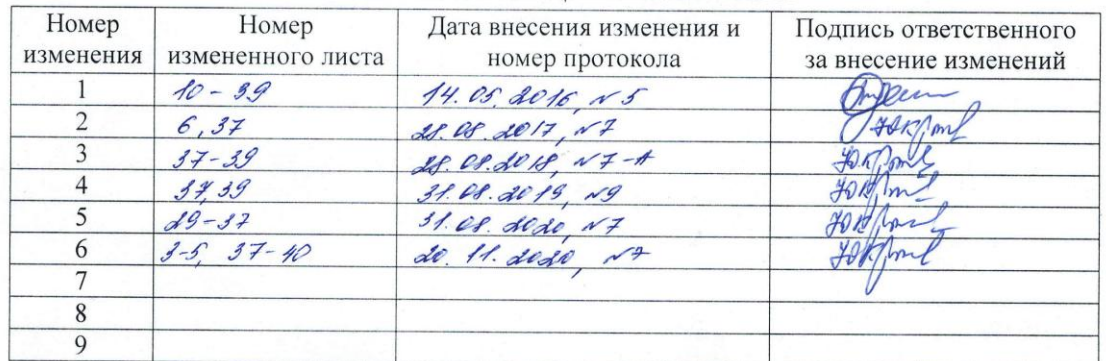 Номер изменения Номер измененного листа Дата внесения изменения и номер протокола Подпись ответственного за внесение изменений
1 10 - 39 14. 05. 2016, №5
2 6, 37 28. 08. 2017, №7
3 37-39 28. 08. 2018, №7-А
4 37, 39 31. 08. 2019, №9
5 29-37 31. 08. 2020, №7
6 3-5, 37-40 20. 11. 2020, №7
7
8
9